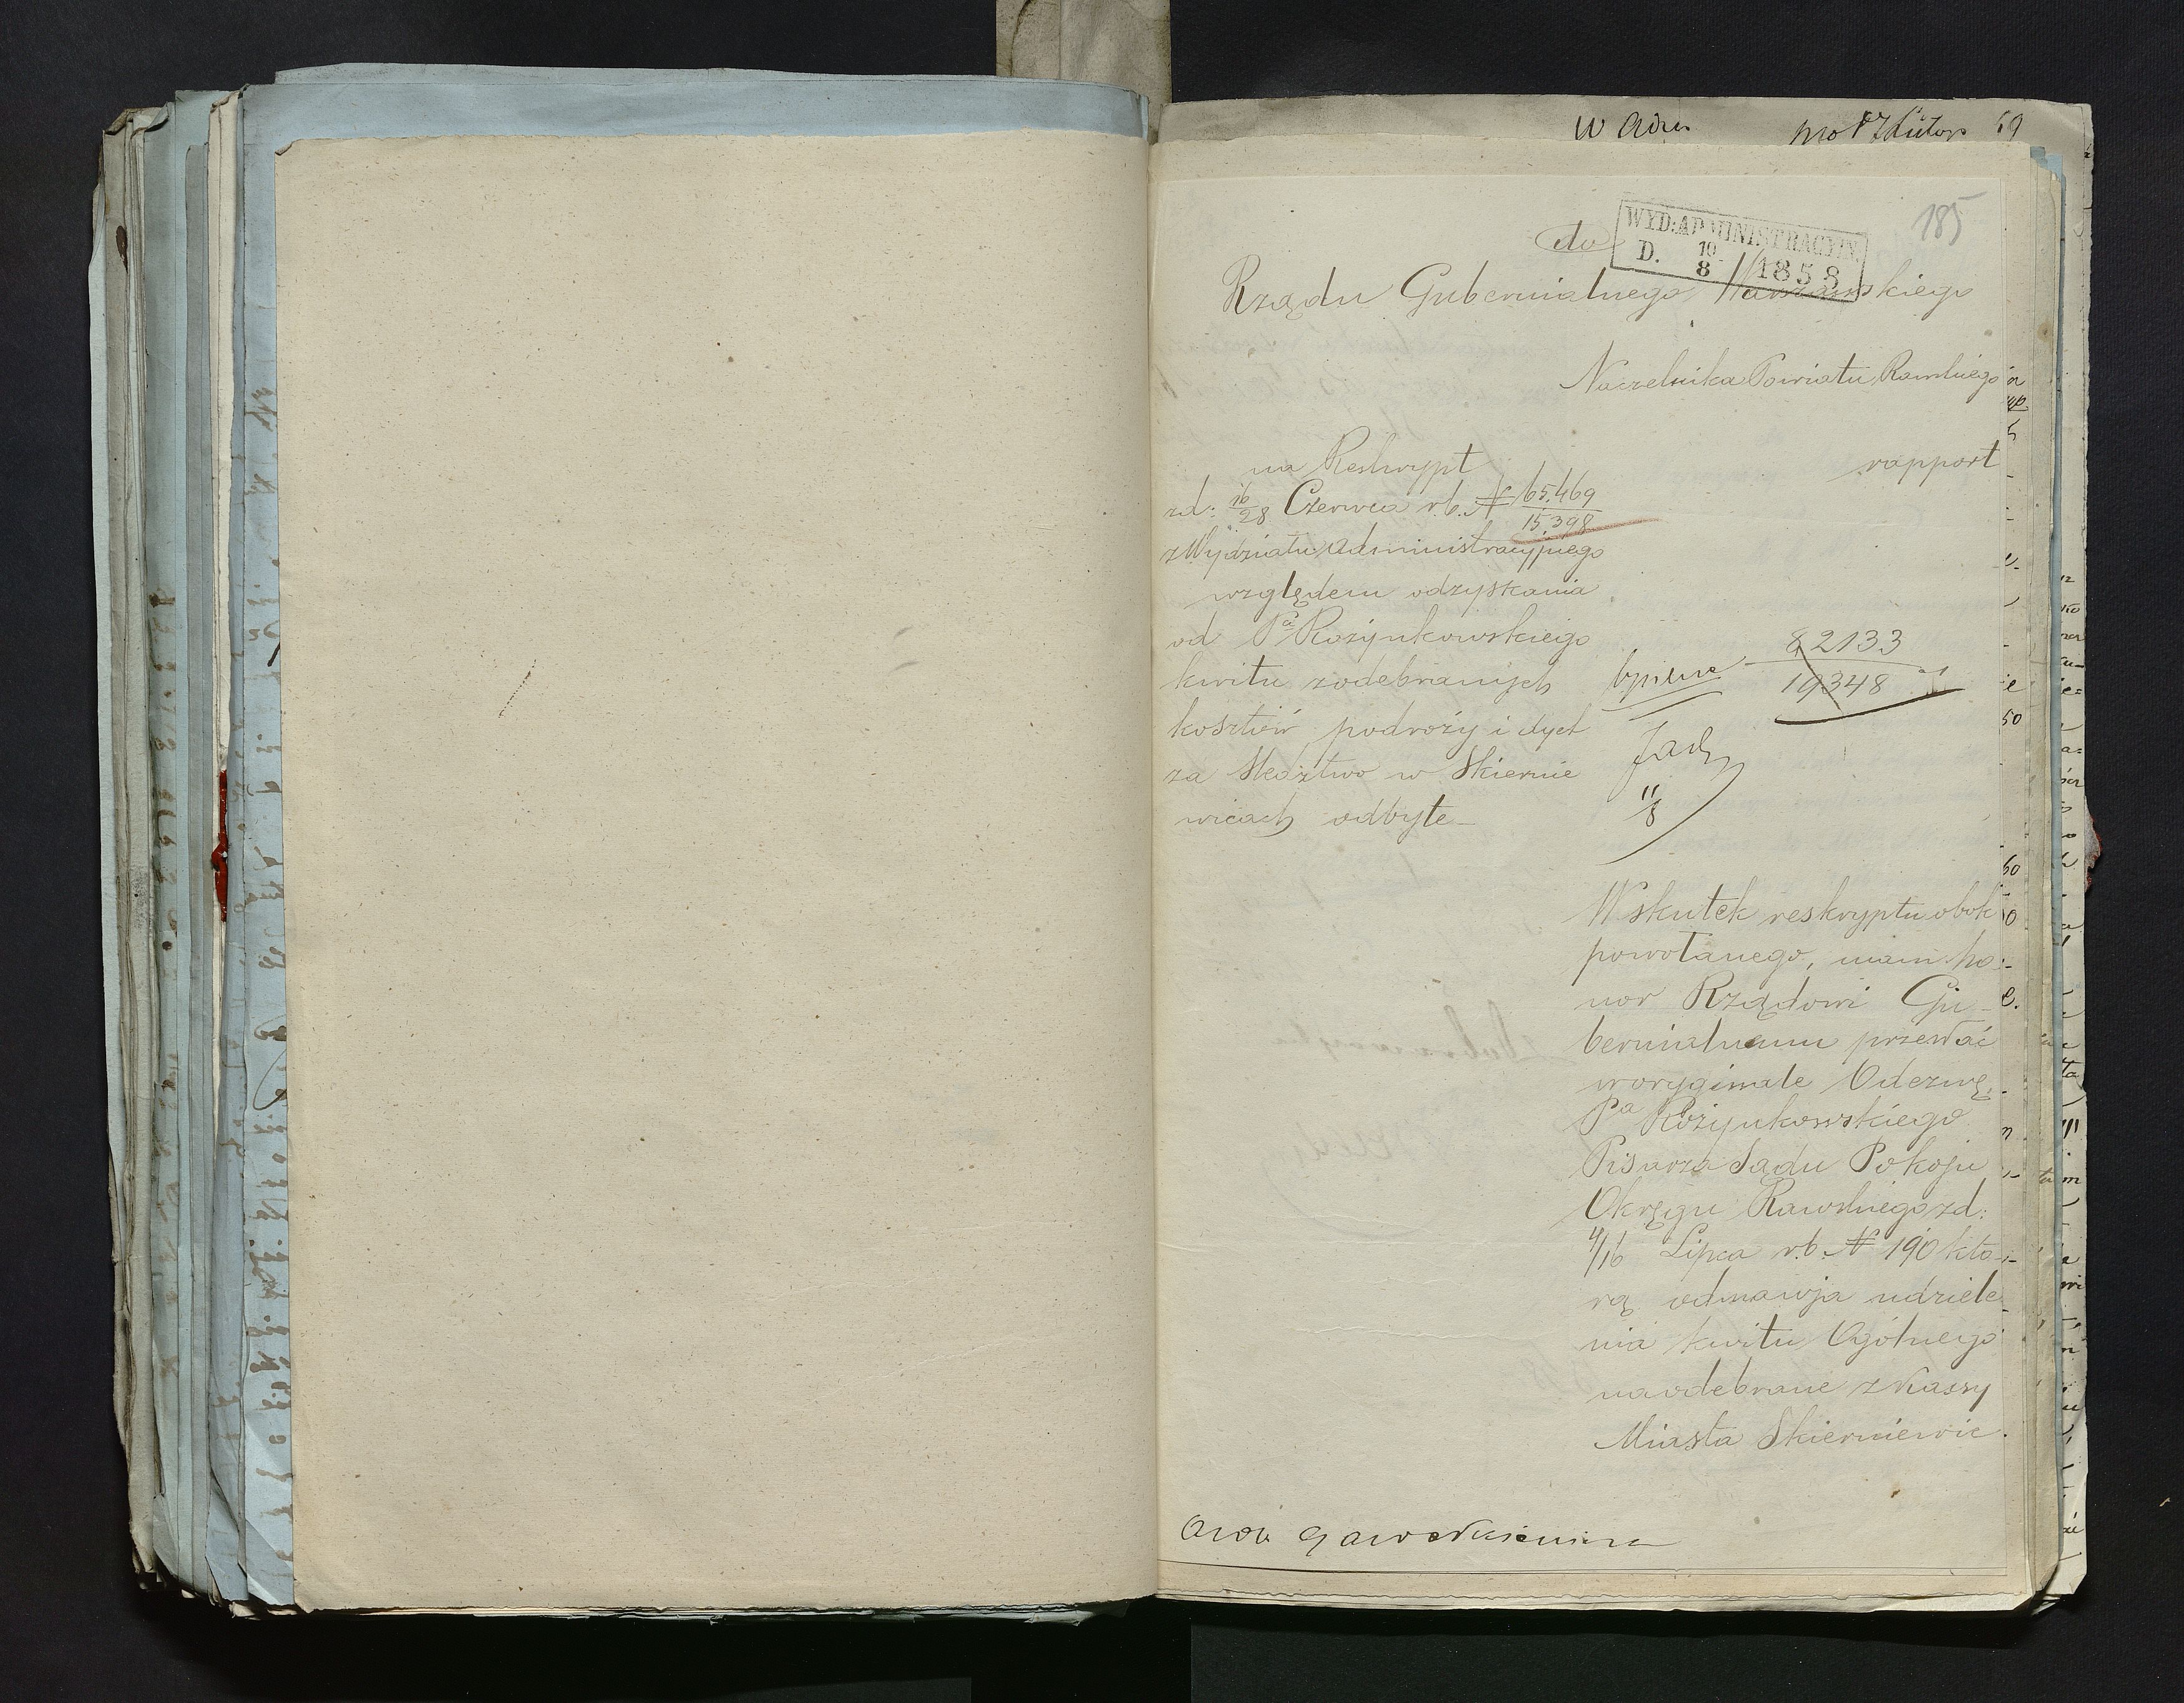 185
WYD: ADMINISTRACYJN.
D. 10/8 1858
do
Rządu Gubernialnego Warszawskiego
Naczelnika Powiatu Rawskiego
rapport
na Reskrypt
zd: 16/28 Czerwca r.b. N 65.469/15.398
z Wydziału Administracyjnego
względem odzyskania
od Pa Rożynkowskiego
kwitu z odebranych
kosztów podroży i dyet
za śledztwo w Skiernie
wicach odbyte
82133
19348
11/8
W skutek reskryptu obok
powołanego, mam ho
nor Rządowi Gu-
bernialnemu przesłać
w oryginale Odezwę
Pa Rożynkowskiego
Pisarza Sądu Pokoju
Okręgu Rawskiego zd:
4/16 Lipca r.b. N 190 któ-
rą odmawja udziele
nia kwitu Ogólnego
na odebrane z Kassy
Miasta Skierniewic